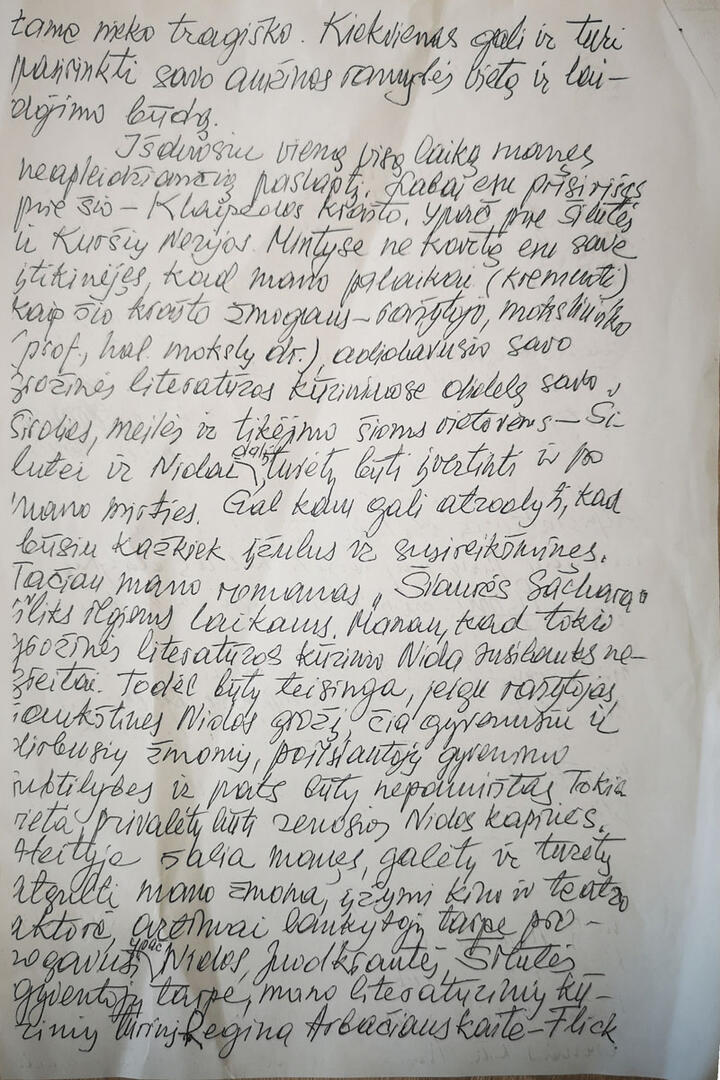 tame nieko tragiško. Kiekvienas gali ir turi
pasirinkti savo amžinos ramybės vietą ir lai-
dojimo būdą.
Išdrįsiu vieną visą laiką manęs
neapleidžiančią paslaptį. Labai esu prisirišęs
prie šio – Klaipėdos krašto. Ypač prie Šilutės
ir Kuršių Nerijos. Mintyse ne kartą esu save
įtikinėjęs, kad mano palaikai (krementi)
kaip šio krašto žmogaus – rašytojo, mokslininko
(prof., hal. mokslų dr.), adidavusio savo
grožinės literatūros kūriniuose didelę savo
širdies, meilės ir tikėjimo šioms vietovėms – Ši-
lutei ir Nidai dalį turėtų būti įvertinti ir po
mano mirties. Gal kam gali atrodyti, kad
būsiu kažkiek įžulus ir susireikšminęs.
Tačiau mano romanas „Šiaurės Sachara"
išliks ilgiems laikams. Manau, kad tokio
grožinės literatūros kūrinio Nida susilauks ne-
greitai. Todėl būtų teisinga, jeigu rašytojas,
išaukštinęs Nidos grožį, čia gyvenusių ir
dirbusių žmonių, poilsiautojų gyvenimo
subtilybes ir pats būtų nepamirštas. Tokia
vieta, privalėtų būti senosios Nidos kapinės.
Ateityje šalia manęs, galėtų ir turėtų
atgulti mano žmona, įžymi kino ir teatro
aktorė, artimai lankytojų tarpe
ypač Nidos, Juodkrantės, Šilutės
gyventojų tarpe, mano literatūrinių kū-
rinių Regina Arbačiauskaitė-Flick